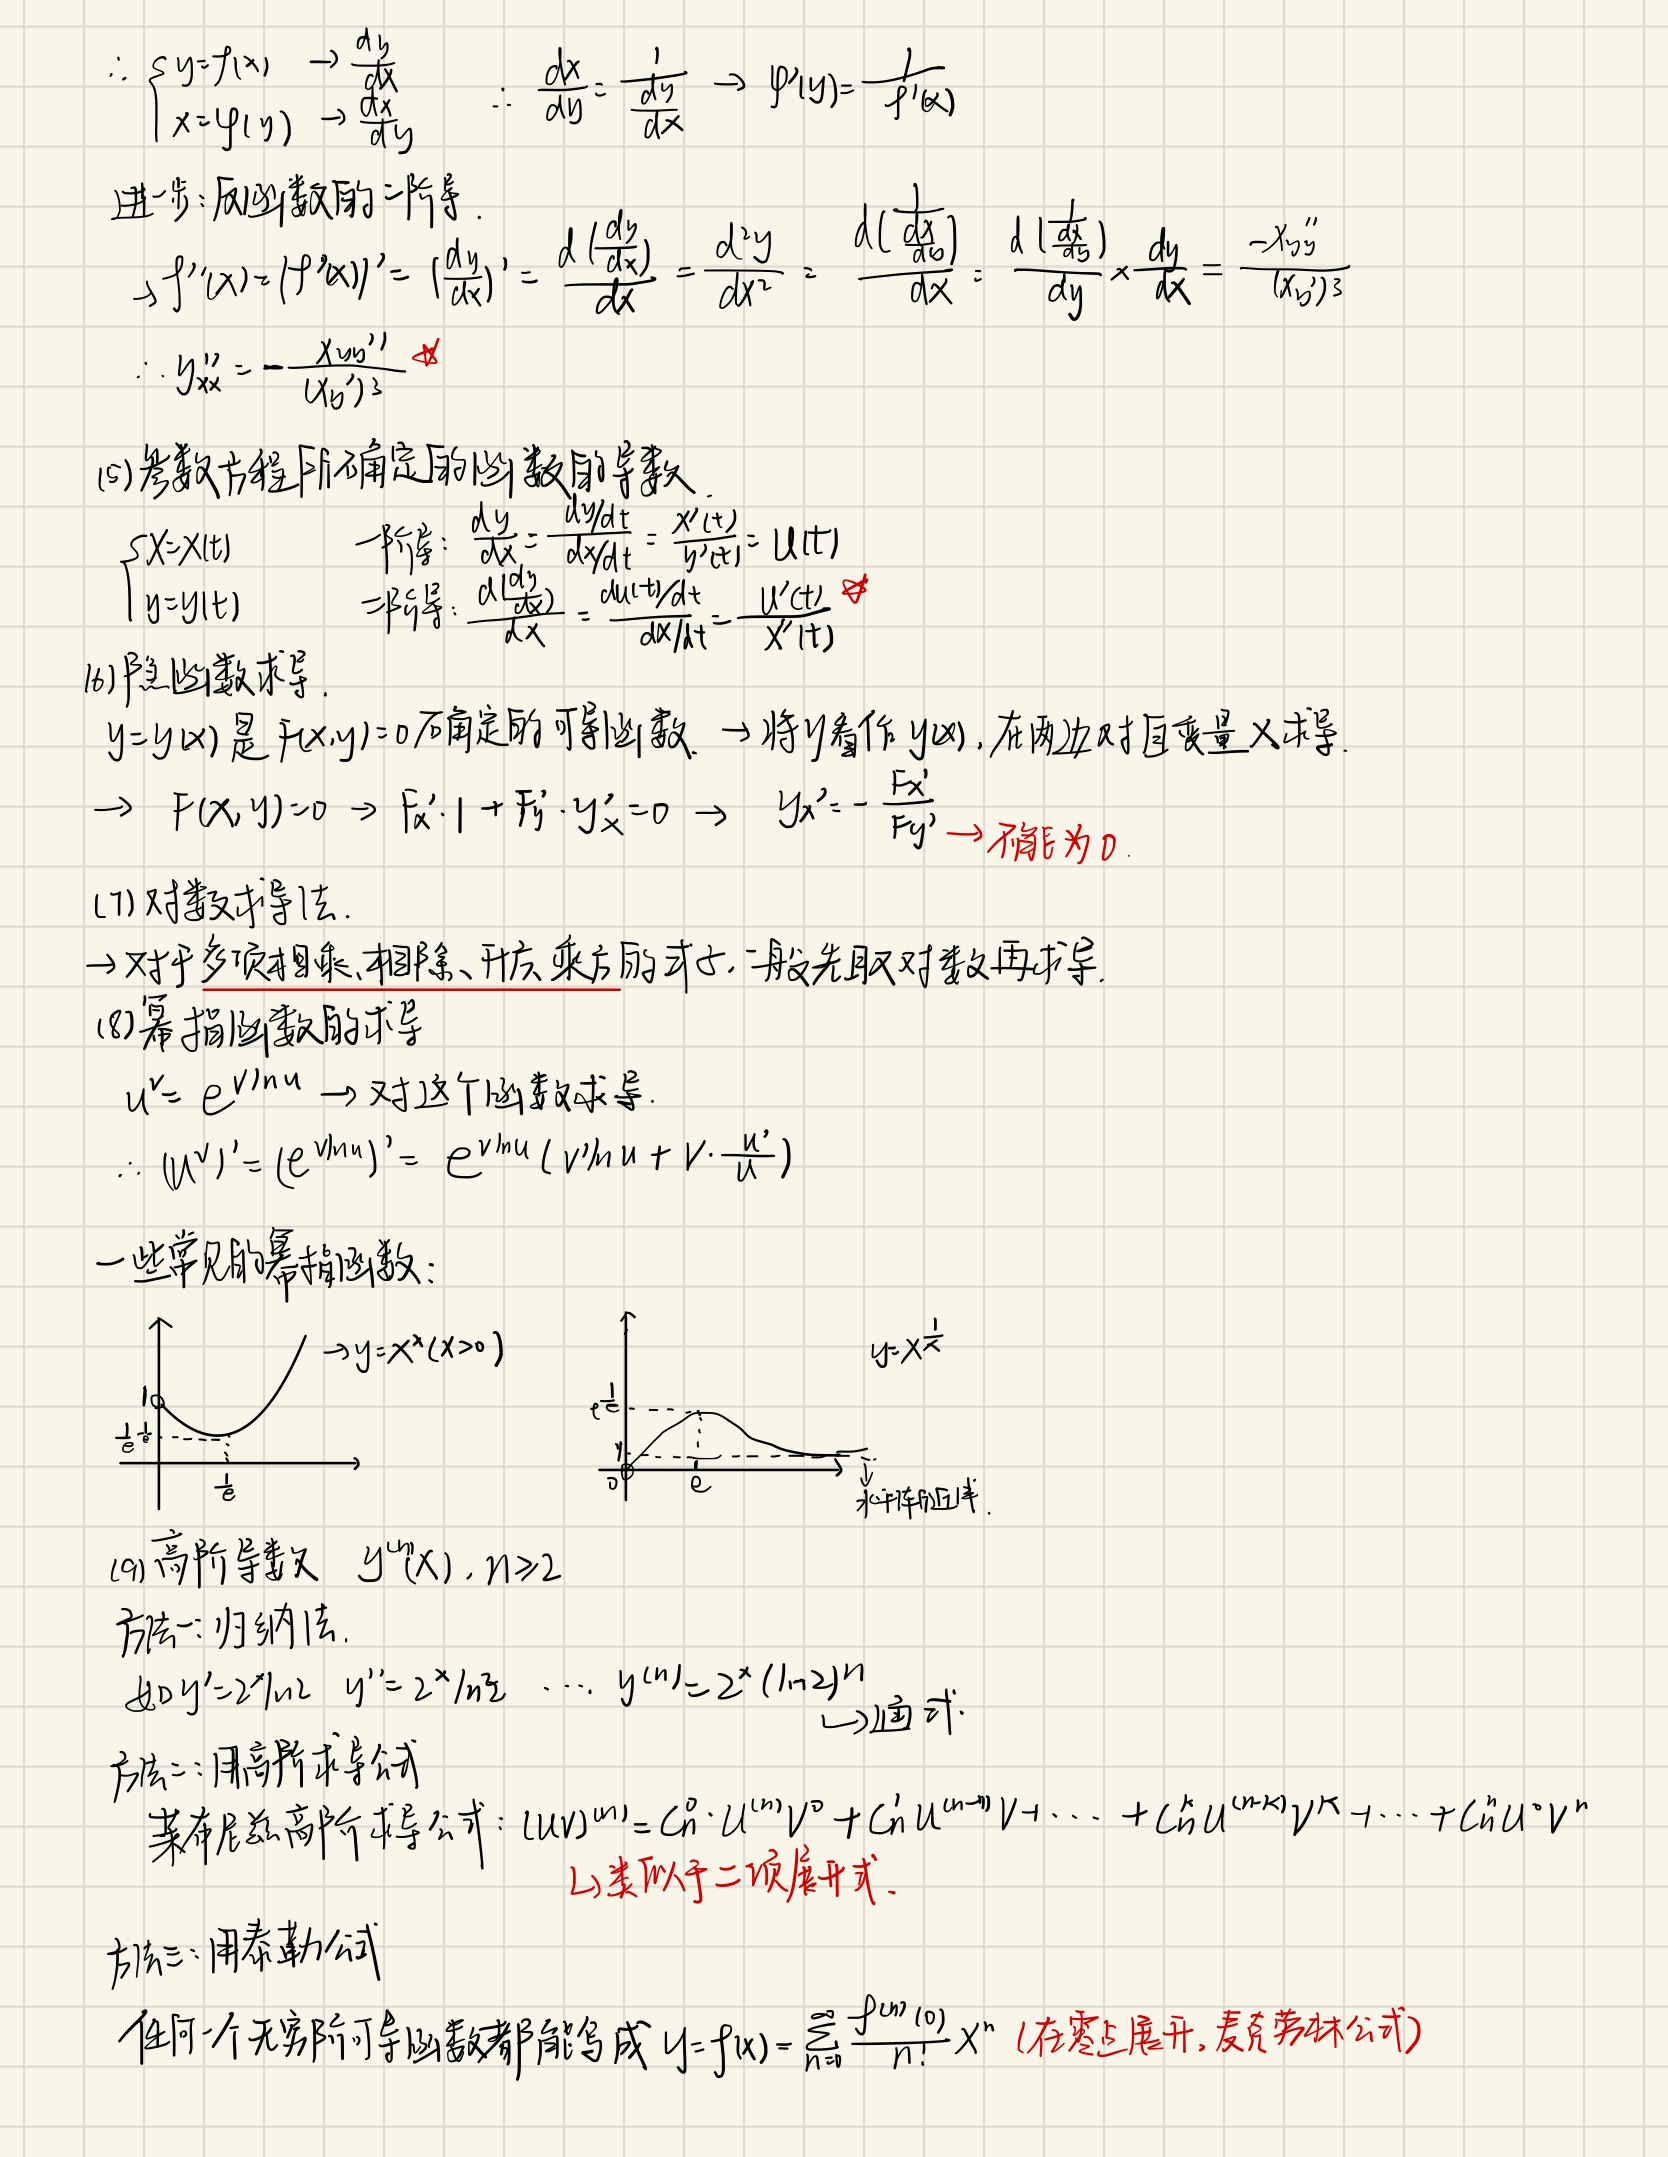 ∴ { y=f(x) → dy/dx
x=φ(y) → dx/dy ∴ dx/dy = 1/(dy/dx) → φ'(y)=1/f'(x)
进一步:反函数的二阶导.
→ f''(x)=(f'(x))'=(dy/dx)'= d(dy/dx)/dx = d²y/dx² = d(1/(dx/dy))/dx = d(1/(dx/dy))/dy × dy/dx = -x_yy''/(x_y')³
∴ y_xx'' = - x_yy''/(x_y')³ ☆
(5)参数方程所确定的函数的导数.
{ x=x(t) 一阶导: dy/dx = (dy/dt)/(dx/dt) = x'(t)/y'(t) = u(t)
y=y(t) 二阶导: d(dy/dx)/dx = (du(t)/dt)/(dx/dt) = u'(t)/x''(t) ☆
(6)隐函数求导.
y=y(x)是F(x,y)=0确定的可导函数. → 将y看作y(x),在两边对自变量x求导.
→ F(x,y)=0 → F_x'·1 + F_y'·y_x'=0 → y_x'= - F_x'/F_y' → 不能为0.
(7)对数求导法.
→ 对于多项相乘、相除、开方、乘方的式子,一般先取对数再求导.
(8)幂指函数的求导
u^v = e^(vlnu) → 对这个函数求导.
∴ (u^v)'=(e^(vlnu))'= e^(vlnu)(v'lnu + v·u'/u)
一些常见的幂指函数:
→ y=x^x(x>0)
y=x^(1/x)
1
1/e^(1/e)
1/e
e^(1/e)
1
0
e
水平渐近线.
(9)高阶导数 y^(n)(x), n≥2
方法一:归纳法.
如y'=2^x ln2 y''=2^x ln²2 ··· y^(n)=2^x(ln2)^n
↳通式.
方法二:用高阶求导公式
莱布尼兹高阶求导公式:(uv)^(n)=C_n^0·u^(n)v^0 + C_n^1 u^(n-1)v+··· + C_n^k u^(n-k)v^k +···+ C_n^n u^0 v^n
↳类似于二项展开式.
方法三:用泰勒公式
任何一个无穷阶可导函数都能写成 y=f(x)=∑_(n=0)^∞ f^(n)(0)/n! x^n (在零点展开,麦克劳林公式)